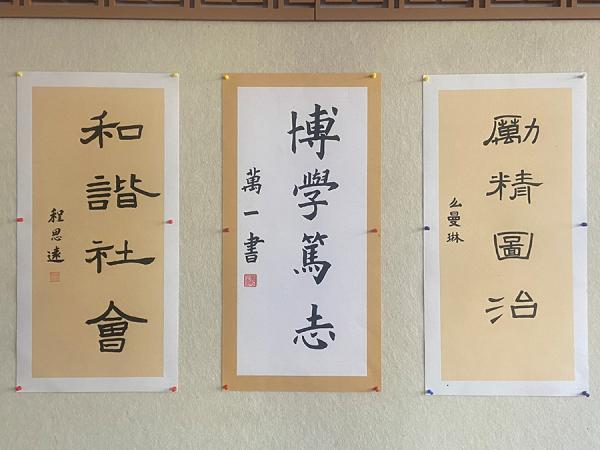 和諧社會
程思遠
博學篤志
萬一書
勵精圖治
么曼琳